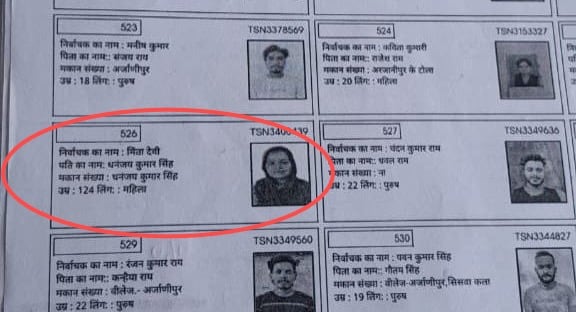 523
TSN3378569
निर्वाचक का नाम : मनीष कुमार
पिता का नाम:: संजय राय
मकान संख्या : अर्जाणीपुर
उम्र : 18 लिंग: : पुरुष
524
TSN3153327
निर्वाचक का नाम : कविता कुमारी
पिता का नाम:: राजेश राम
मकान संख्या : अरजानीपुर के टोला
उम्र : 20 लिंग: : महिला
526
निर्वाचक का नाम : मिंता देवी
पति का नाम: धनंजय कुमार सिंह
मकान संख्या : धनंजय कुमार सिंह
उम्र : 124 लिंग: : महिला
527
TSN3349636
निर्वाचक का नाम : चंदन कुमार राम
पिता का नाम:: धवल राम
मकान संख्या : ना
उम्र : 22 लिंग: : पुरुष
529
TSN3349560
निर्वाचक का नाम : रंजन कुमार राय
पिता का नाम:: कन्हैया राय
मकान संख्या : वीलेज.- अर्जाणीपुर
उम्र : 22 लिंग: : पुरुष
530
TSN3344827
निर्वाचक का नाम : पवन कुमार सिंह
पिता का नाम:: गौतम सिंह
मकान संख्या : वीलेज-अर्जाणीपुर,सिसवा कला
उम्र : 19 लिंग: : पुरुष